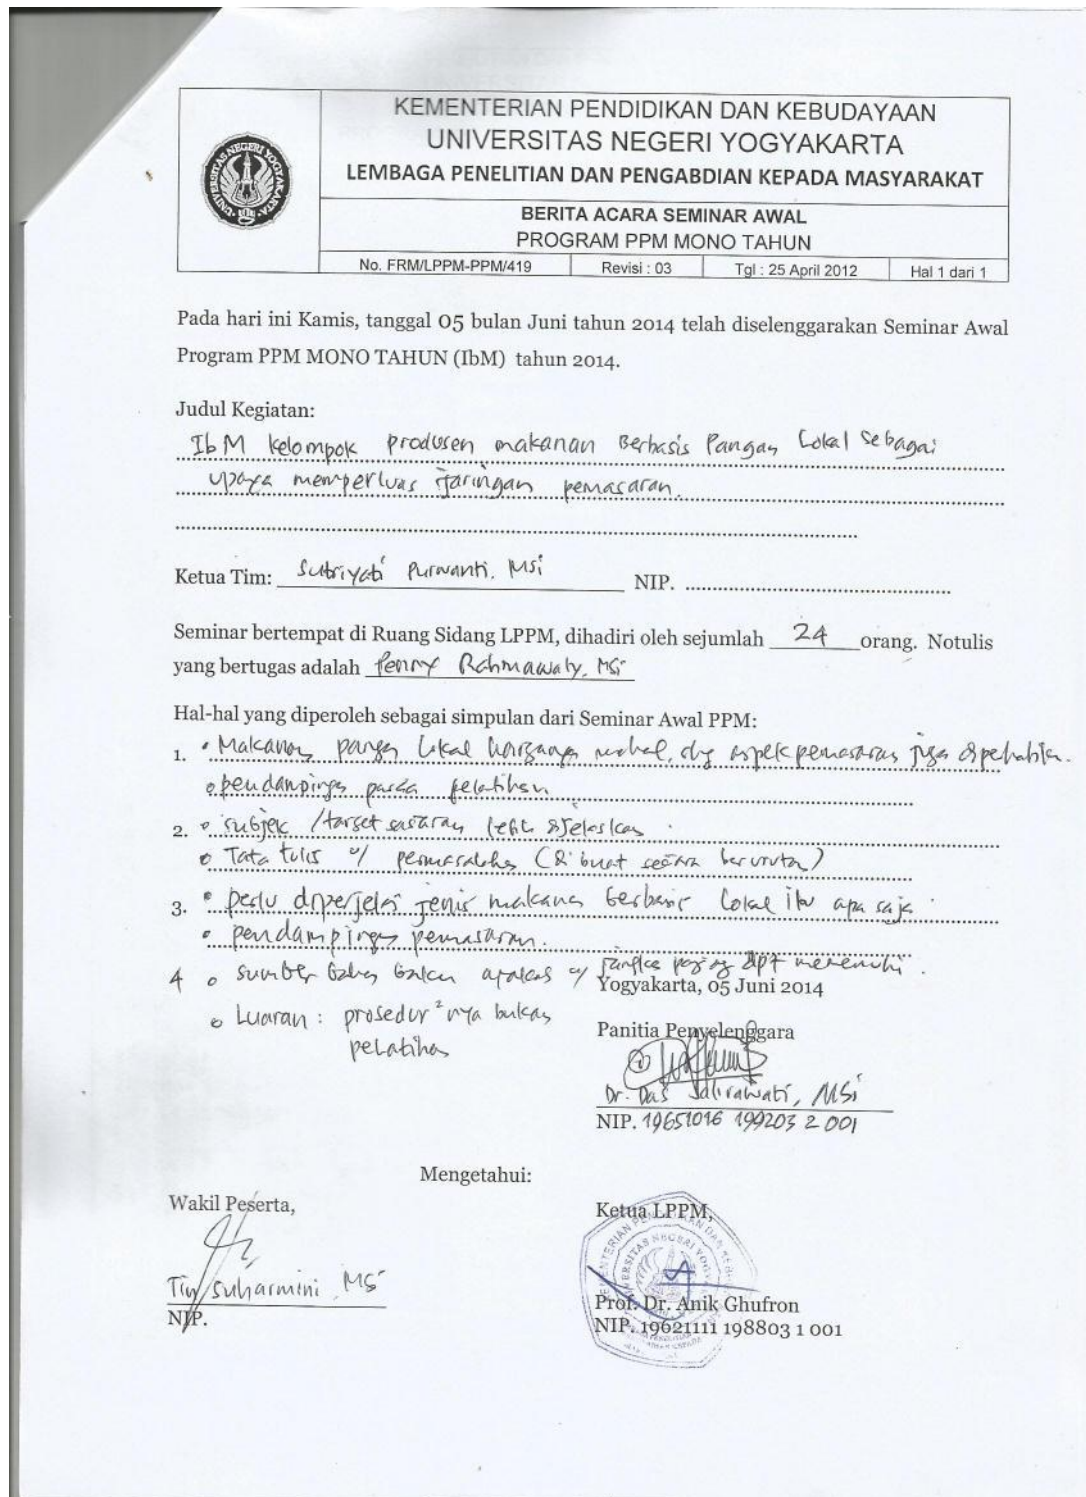 KEMENTERIAN PENDIDIKAN DAN KEBUDAYAAN
UNIVERSITAS NEGERI YOGYAKARTA
LEMBAGA PENELITIAN DAN PENGABDIAN KEPADA MASYARAKAT
UNIVERSITAS NEGERI YOGYAKARTA
BERITA ACARA SEMINAR AWAL
PROGRAM PPM MONO TAHUN
No. FRM/LPPM-PPM/419 Revisi : 03 Tgl : 25 April 2012 Hal 1 dari 1
Pada hari ini Kamis, tanggal 05 bulan Juni tahun 2014 telah diselenggarakan Seminar Awal
Program PPM MONO TAHUN (IbM) tahun 2014.
Judul Kegiatan:
IbM kelompok produsen makanan Berbasis Pangan Lokal Sebagai
upaya memperluas jaringan pemasaran.
Ketua Tim: Sutriyati Purwanti. MSi NIP.
Seminar bertempat di Ruang Sidang LPPM, dihadiri oleh sejumlah 24 orang. Notulis
yang bertugas adalah Penny Rahmawaty, MSi
Hal-hal yang diperoleh sebagai simpulan dari Seminar Awal PPM:
1. • Makanan pangan lokal harganya mahal, aspek pemasaran juga
• pendampingan pasca pelatihan
2. • subjek / target sasaran lebih dijelaskan
• Tata tulis permasalahan (dibuat secara berurutan)
3. • perlu diperjelas jenis makanan berbasis lokal itu apa saja
• pendampingan pemasaran.
4 • sumber bahan baku apakah dpt memenuhi.
Yogyakarta, 05 Juni 2014
• Luaran : prosedur² nya bukan
pelatihan
Panitia Penyelenggara
Dr. Das Salirawati, MSi
NIP. 19651016 199203 2 001
Mengetahui:
Wakil Peserta,
Tin Suharmini, MSi
NIP.
Ketua LPPM,
Prof. Dr. Anik Ghufron
NIP. 19621111 198803 1 001